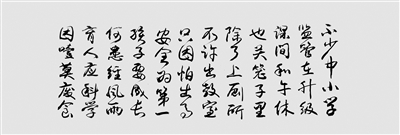 不少中小学
监管在升级
课间和午休
也关笼子里
除了上厕所
不许出教室
只因怕出事
安全为第一
孩子要成长
何患经风雨
育人应科学
因噎莫废食